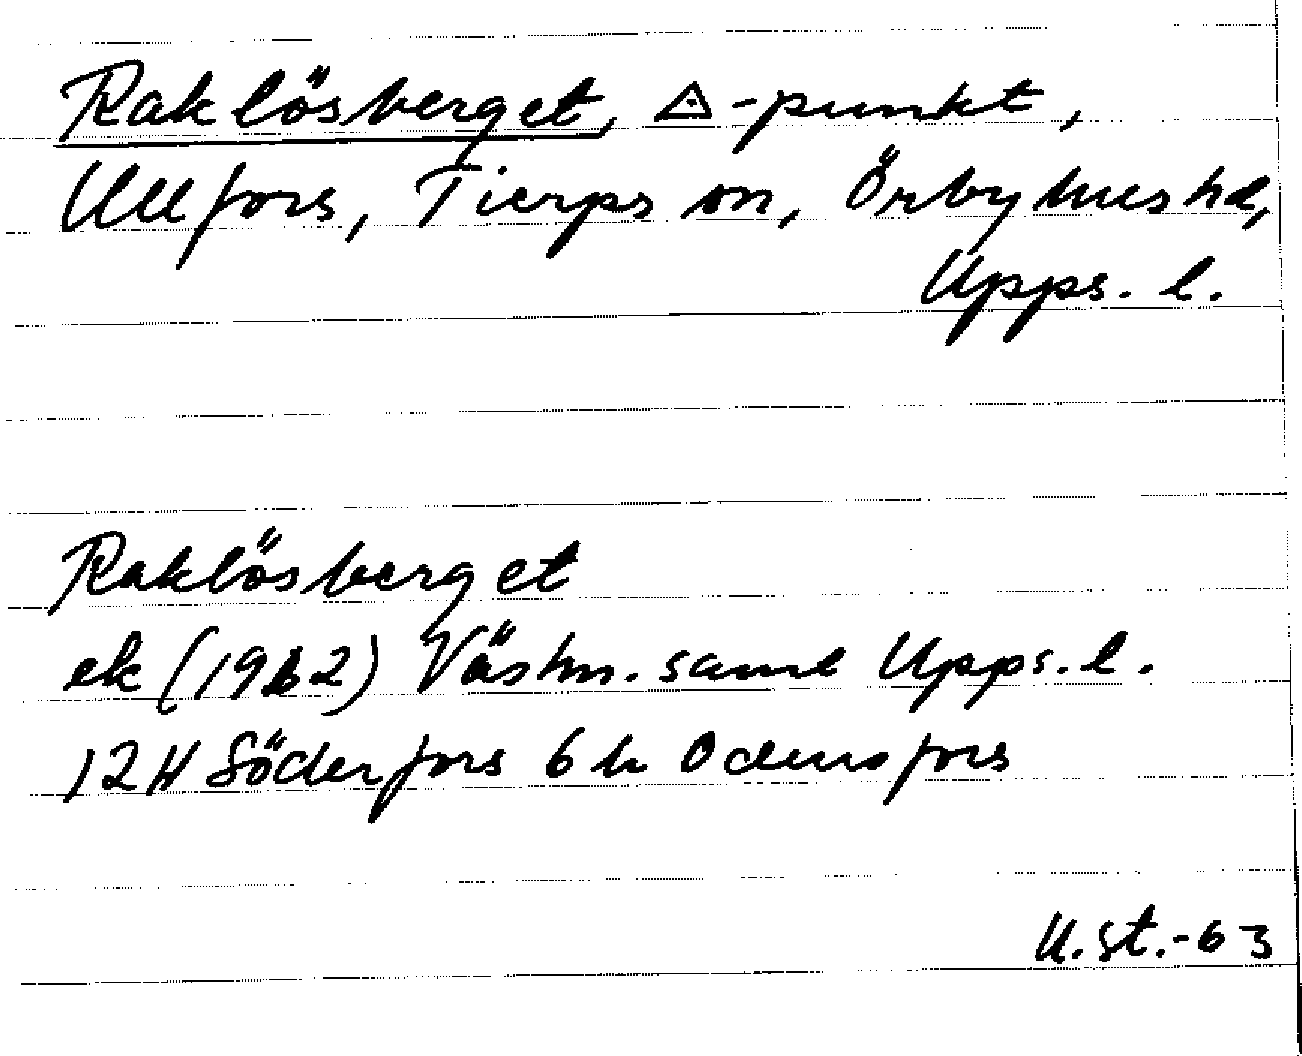 Raklösberget, △-punkt,
Ullfors, Tierps sn, Örbyhus hd,
Upps. l.
Raklösberget
ek (1962) Västm. samt Upps. l.
12H Söderfors 6 h Odensfors
U.St.-63